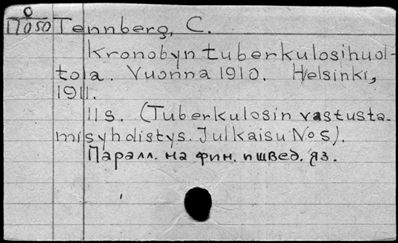 0
17050 Tennberg, C.
Kronobyn tuberkulosihuol-
tola. Vuonna 1910. Helsinki,
1911.
11s. (Tuberkulosin vastusta-
misyhdistys. Julkaisu No5).
Паралл. на фин. и швед. яз.